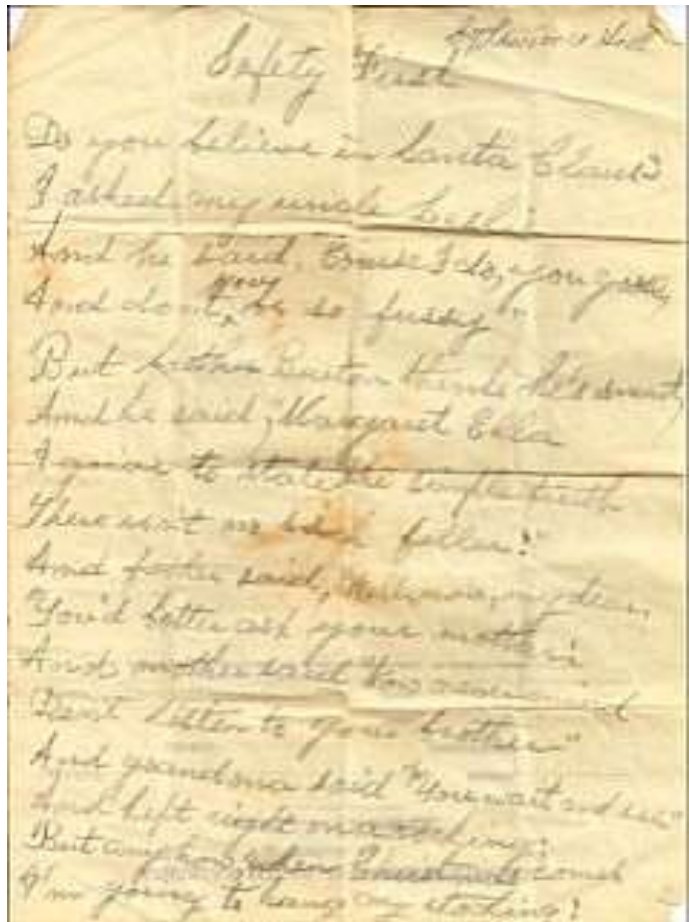 Safety First
Do you believe in Santa Claus?
I asked my uncle
And he said, Course I do, you
And don't you be so fussy"
But brother thinks he's smart,
And he said, "Margaret Ella
to state the simple truth
There ain't no such feller!"
And father said, my dear,
You'd better ask your mother"
And mother said "
Don't listen to your brother"
And grandma said "You wait and see"
And kept right on a rocking:
But anyhow when Christmas comes
I'm going to hang my stocking!